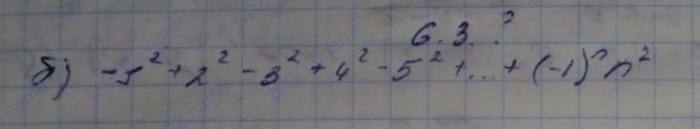 6.3.?
б) -1² + 2² - 3² + 4² - 5² + ... + (-1)ⁿ n²